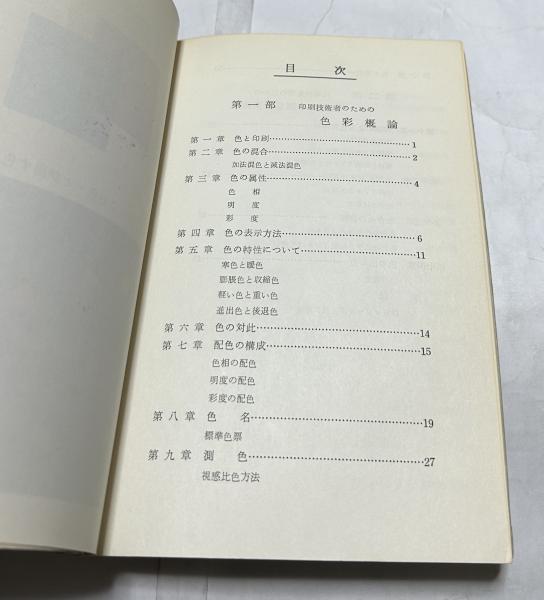 目次
第一部 印刷技術者のための
色彩概論
第一章 色と印刷……………………………1
第二章 色の混合……………………………2
加法混色と減法混色
第三章 色の属性……………………………4
色相
明度
彩度
第四章 色の表示方法……………………………6
第五章 色の特性について……………………………11
寒色と暖色
膨脹色と収縮色
軽い色と重い色
進出色と後退色
第六章 色の対比……………………………14
第七章 配色の構成……………………………15
色相の配色
明度の配色
彩度の配色
第八章 色名……………………………19
標準色票
第九章 測色……………………………27
視感比色方法